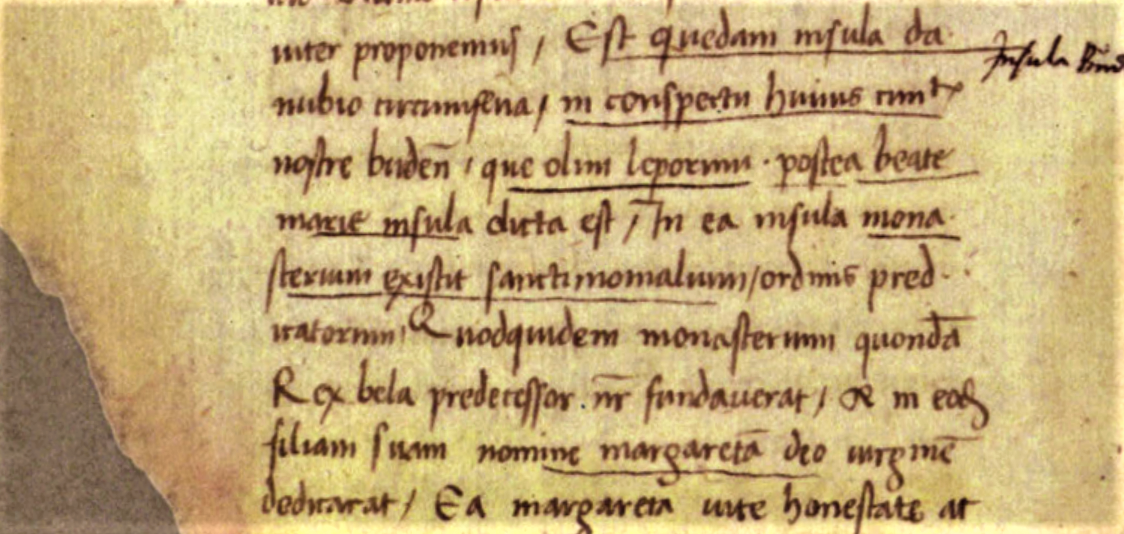 uiter proponemus / Est quedam insula da
Insula
nubio circumsepta / in conspectu huius
nostre buden̄ / que olim leporum · postea beate
marie insula dicta est / In ea insula mona
sterium existit sanctimonialium / ordinis pred
icatorum / Quodquidem monasterium quondā
Rex bela predecessor nr̄ fundauerat / & in
filiam suam nomine margaretā deo uirginē
dedicarat / Ea margareta uite honestate at